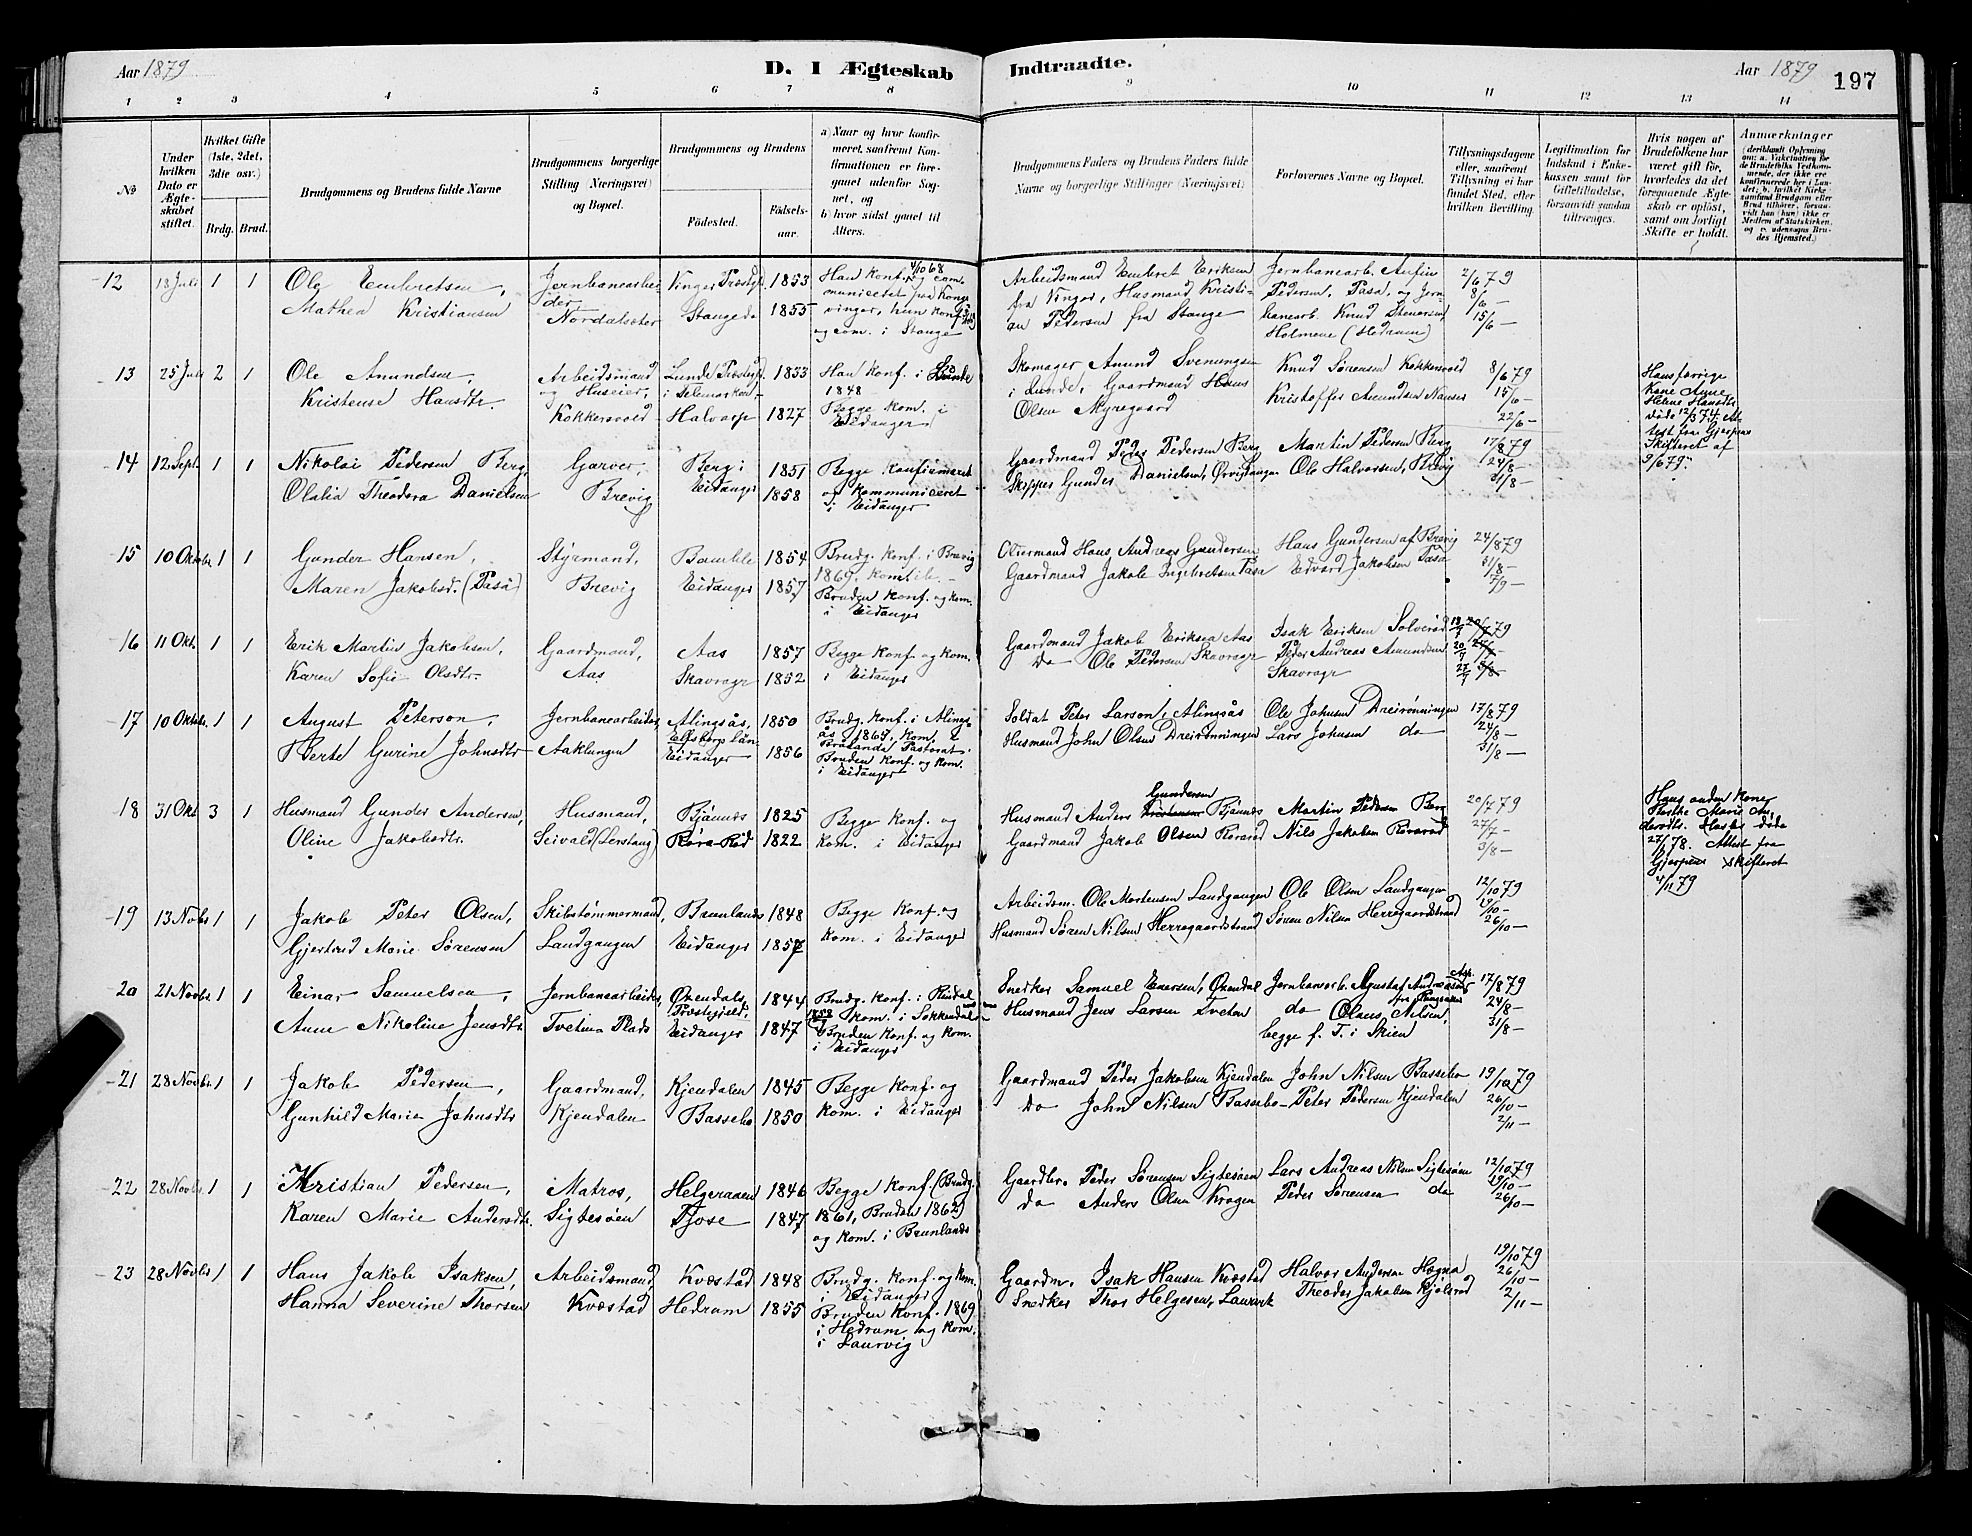 Aar 1879
D. I Ægteskab Indtraadte.
Aar 1879 197
1 2 3 4 5 6 7 8 9 10 11 12 13 14
No
Under hvilken Dato er Ægteskabet stiftet.
Hvilket Gifte (1ste, 2det, 3die osv.)
Brdg. Brud.
Brudgommens og Brudens fulde Navne
Brudgommens borgerlige Stilling (Næringsvei) og Bopæl.
Brudgommens og Brudens
Fødested.
Fødselsaar.
a) Naar og hvor konfirmeret, saafremt Konfirmationen er foregaaet udenfor Sognet, og
b) hvor sidst gaaet til Alters.
Brudgommens Faders og Brudens Faders fulde Navne og borgerlige Stillinger (Næringsvei)
Forlovernes Navne og Bopæl.
Tillysningsdagene eller, saafremt Tillysning ei har fundet Sted, efter hvilken Bevilling.
Legitimation for Indskud i Enkekassen samt for Giftetilladelse, forsaavidt saadan tiltrænges.
Hvis nogen af Brudefolkene har været gift før, hvorledes da det foregaaende Ægteskab er opløst, samt om lovligt Skifte er holdt.
Anmerkninger
12 18 Juli 1 1 Ole Embretsen, Jernbanearbei- Vinger Præstgj. 1853 Han konf. 4/10 68 og com- Arbeidsmand Embret Eriksen Jernbanearb. Anfin 2/6 79
Mathea Kristiansen der Nordalsæter Stange do 1855 municeret fra Kongsvinger, hun konf. og com. i Stange fra Vinger, Husmand Kristian Pedersen fra Stange Pedersen, Pasa, og Jernbanearb. Knud Stenersen Holmene (Hedrum) 8/6 – 15/6 –
13 25 Juli 2 1 Ole Amundsen, Arbeidsmand Lunde Præstgj. 1833 Han konf. i Lunde Skomager Amund Svenungsen Knud Sørensen Kokkersvold 8/6 79 Hans forrige
Kristense Hansdtr. og Huseier, Kokkersvold i Telemarken – Halvarp 1827 1848 Begge kom. i Eidanger i Lunde, Gaardmand Hans Olsen Myregaard Kristoffer Amundsen Nanset 15/6 – 22/6 – Kone Anne Helene Hansdtr. døde 12/3 74. Attest fra Gjerpens Skifteret af 9/6 79.
14 12 Sept. 1 1 Nikolai Pedersen Berg, Garver, Berg i 1851 Begge konfirmeret Gaardmand Peder Pedersen Berg Martin Pedersen Berg 17/8 79
Olalia Theodora Danielsen Brevig Eidanger 1858 og kommuniceret i Eidanger Skipper Gunder Danielsen, Ørvigtangen Ole Halvorsen, Brevig 24/8 – 31/8 –
15 10 Oktobr. 1 1 Gunder Hansen, Styrmand, Bamble 1854 Brudg. konf. i Brevig Oliermand Hans Andreas Gundersen Hans Gundersen af Brevig 24/8 79
Maren Jakobsd. (Pasa) Brevig Eidanger 1857 1869, kom. ib. – Bruden konf. og kom. i Eidanger Gaardmand Jakob Ingebretsen Pasa Edvard Jakobsen Pasa 31/8 – 7/9 –
16 11 Okt. 1 1 Erik Martin Jakobsen, Gaardmand, Aas 1857 Begge konf. og kom. Gaardmand Jakob Eriksen Aas Isak Eriksen Solverød 13/7 20/7 79
Karen Sofie Olsdtr. Aas Skavrager 1852 i Eidanger do Ole Pedersen Skavrager Peder Andreas Amundsen Skavrager 20/7 27/7 – 27/7 3/8 –
17 10 Oktobr. 1 1 August Peterson, Jernbanearbeider, Alingsås, 1850 Brudg. konf. i Alings- Soldat Peter Larson, Alingsås Ole Johnsen Dreirønningen 17/8 79
Berte Gurine Johnsdtr. Aaklungen Elfsborgs län – Eidanger 1856 ås 1867, kom. i Brålanda Pastorat. Bruden konf. og kom. i Eidanger Husmand John Olsen Dreirønningen Lars Johnsen do 24/8 – 31/8 –
18 31 Okt 3 1 Husmand Gunder Andersen, Husmand, Bjønnes 1825 Begge konf. og Husmand Anders Gundersen Bjønnes Martin Pedersen Berg 20/7 79 Hans anden Kone
Oline Jakobsdtr. Seivald (Lerstang) Røra-Rød 1822 kom. i Eidanger Gaardmand Jakob Olsen Rørarød Nils Jakobsen Rørarød 27/7 – 3/8 – Berthe Marie Andersdtr. døde 27/1 78. Attest fra Gjerpens Skifteret 4/11 79
19 13 Novbr. 1 1 Jakob Peter Olsen, Skibstømmermand, Bamlands 1848 Begge konf. og Arbeidsm. Ole Mortensen Landgangen Ole Olsen Landgangen 12/10 79
Gjertrud Marie Sørensen Landgangen Eidanger 1857 kom. i Eidanger Husmand Søren Nilsen Herregaardstrand Søren Nilsen Herregaardstrand 19/10 – 26/10 –
20 21 Novbr. 1 1 Einar Samuelsen, Jernbanearbeider, Øxendals 1844 Brudg. konf. i Rindal Snedker Samuel Enersen, Øxendal Jernbanearb. Agustaf Andreasen 17/8 79
Anne Nikoline Jensdtr. Tveten Plads Præstegjeld, Eidanger 1847 1858 kom. i Sokkendal – Bruden konf. og kom. i Eidanger Husmand Jens Larsen Tveten do Olaus Nilsen, begge f. T. i Skien 24/8 – 31/8 –
21 28 Novbr. 1 1 Jakob Pedersen, Gaardmand, Kjendalen 1845 Begge konf. og Gaardmand Peder Jakobsen Kjendalen John Nilsen Bassebo 19/10 79
Gunhild Marie Johnsdtr Kjendalen Bassebo 1850 kom. i Eidanger do John Nilsen Bassebo – Peter Pedersen Kjendalen 26/10 – 2/11 –
22 28 Novbr. 1 1 Kristian Pedersen, Matros, Helgeraaen 1846 Begge konf. (Brudg. Gaardbr. Peder Sørensen Sigtesøen Lars Andreas Nilsen Sigtesøen 12/10 79
Karen Marie Andersdtr. Sigtesøen Tjose 1847 1861, Bruden 1862) og kom. i Brunlanæs do Anders Olsen Kragen Peder Sørensen do 19/10 – 26/10 –
23 28 Novbr 1 1 Hans Jakob Isaksen, Arbeidsmand Kvæstad 1848 Brudg. konf. og kom. Gaardm. Isak Hansen Kvæstad Halvor Andersen Høgna 19/10 79
Hanna Severine Thorsen Kvæstad Hedrum 1855 i Eidanger Bruden konf. 1869 i Hedrum og kom. i Laurvig Snedker Thor Helgesen, Laurvik Theodor Jakobsen Kjølsrød 26/10 – 2/11 –